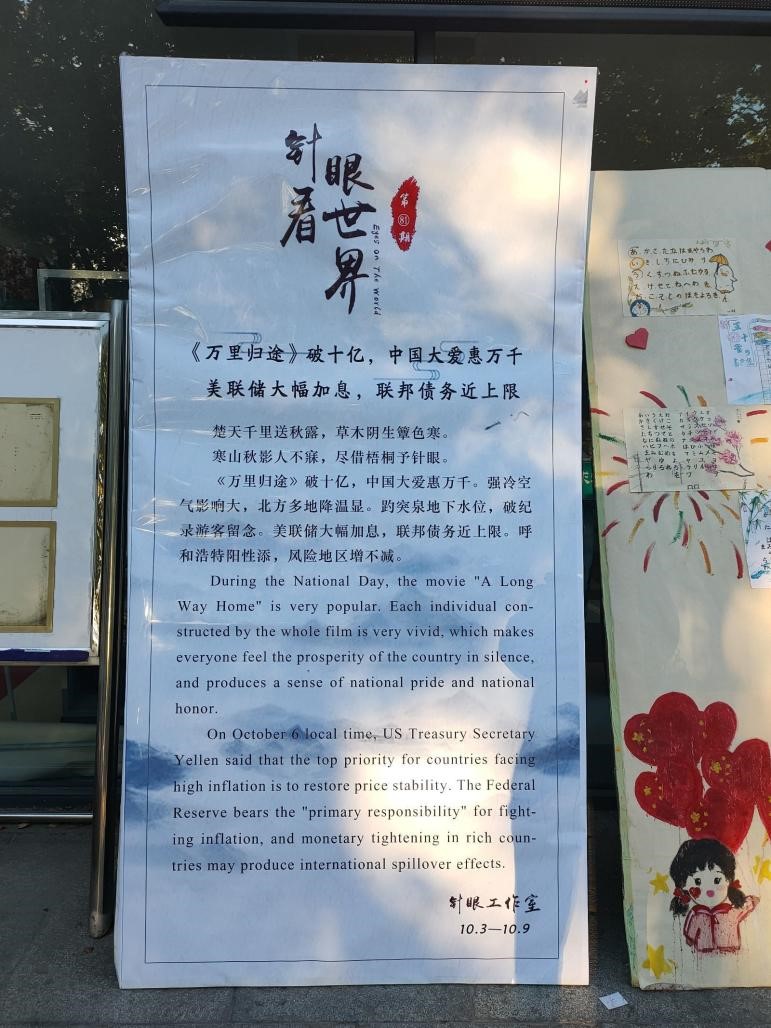 针眼看世界
Eyes on The World
第81期
《万里归途》破十亿，中国大爱惠万千
美联储大幅加息，联邦债务近上限
楚天千里送秋露，草木阴生簟色寒。
寒山秋影人不寐，尽借梧桐予针眼。
《万里归途》破十亿，中国大爱惠万千。强冷空
气影响大，北方多地降温显。趵突泉地下水位，破纪
录游客留念。美联储大幅加息，联邦债务近上限。呼
和浩特阳性添，风险地区增不减。
During the National Day, the movie "A Long
Way Home" is very popular. Each individual con-
structed by the whole film is very vivid, which makes
everyone feel the prosperity of the country in silence,
and produces a sense of national pride and national
honor.
On October 6 local time, US Treasury Secretary
Yellen said that the top priority for countries facing
high inflation is to restore price stability. The Federal
Reserve bears the "primary responsibility" for fight-
ing inflation, and monetary tightening in rich coun-
tries may produce international spillover effects.
针眼工作室
10.3—10.9